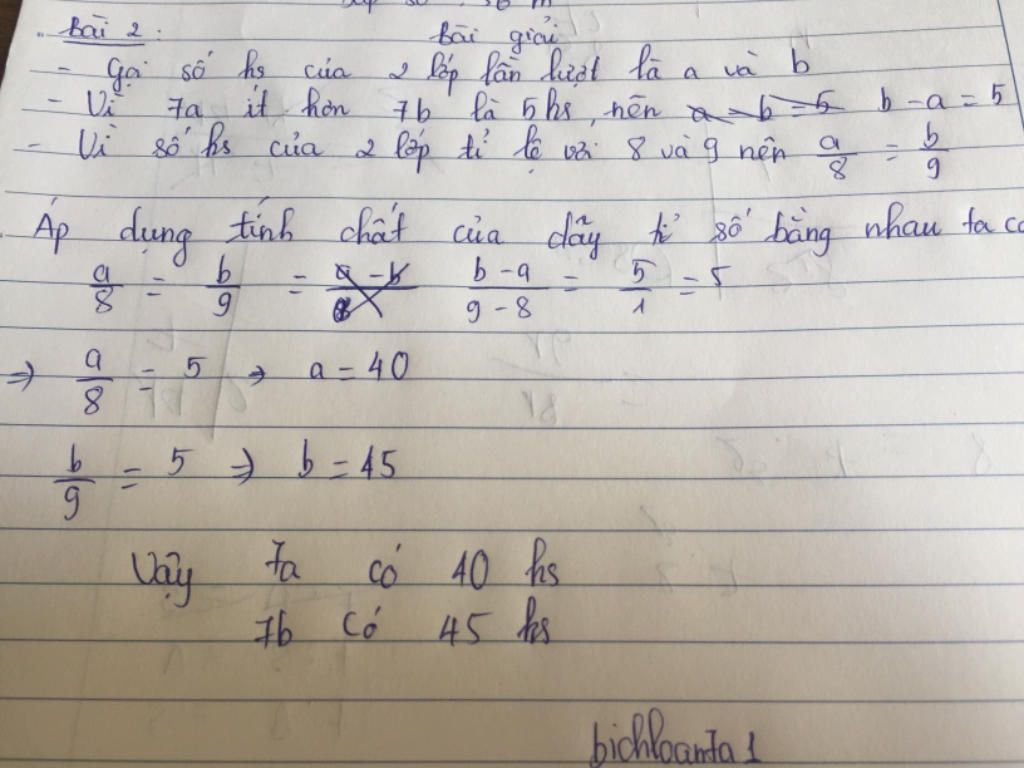 Bài 2: Bài giải
- Gọi số hs của 2 lớp lần lượt là a và b
- Vì 7a ít hơn 7b là 5hs, nên a - b = 5 b - a = 5
- Vì số hs của 2 lớp tỉ lệ với 8 và 9 nên a/8 = b/9
Áp dụng tính chất của dãy tỉ số bằng nhau ta có
a/8 = b/9 = a - b / 8 b - a / 9 - 8 = 5/1 = 5
⇒ a/8 = 5 → a = 40
b/9 = 5 ⇒ b = 45
Vậy 7a có 40 hs
7b có 45 hs
bichloanta1